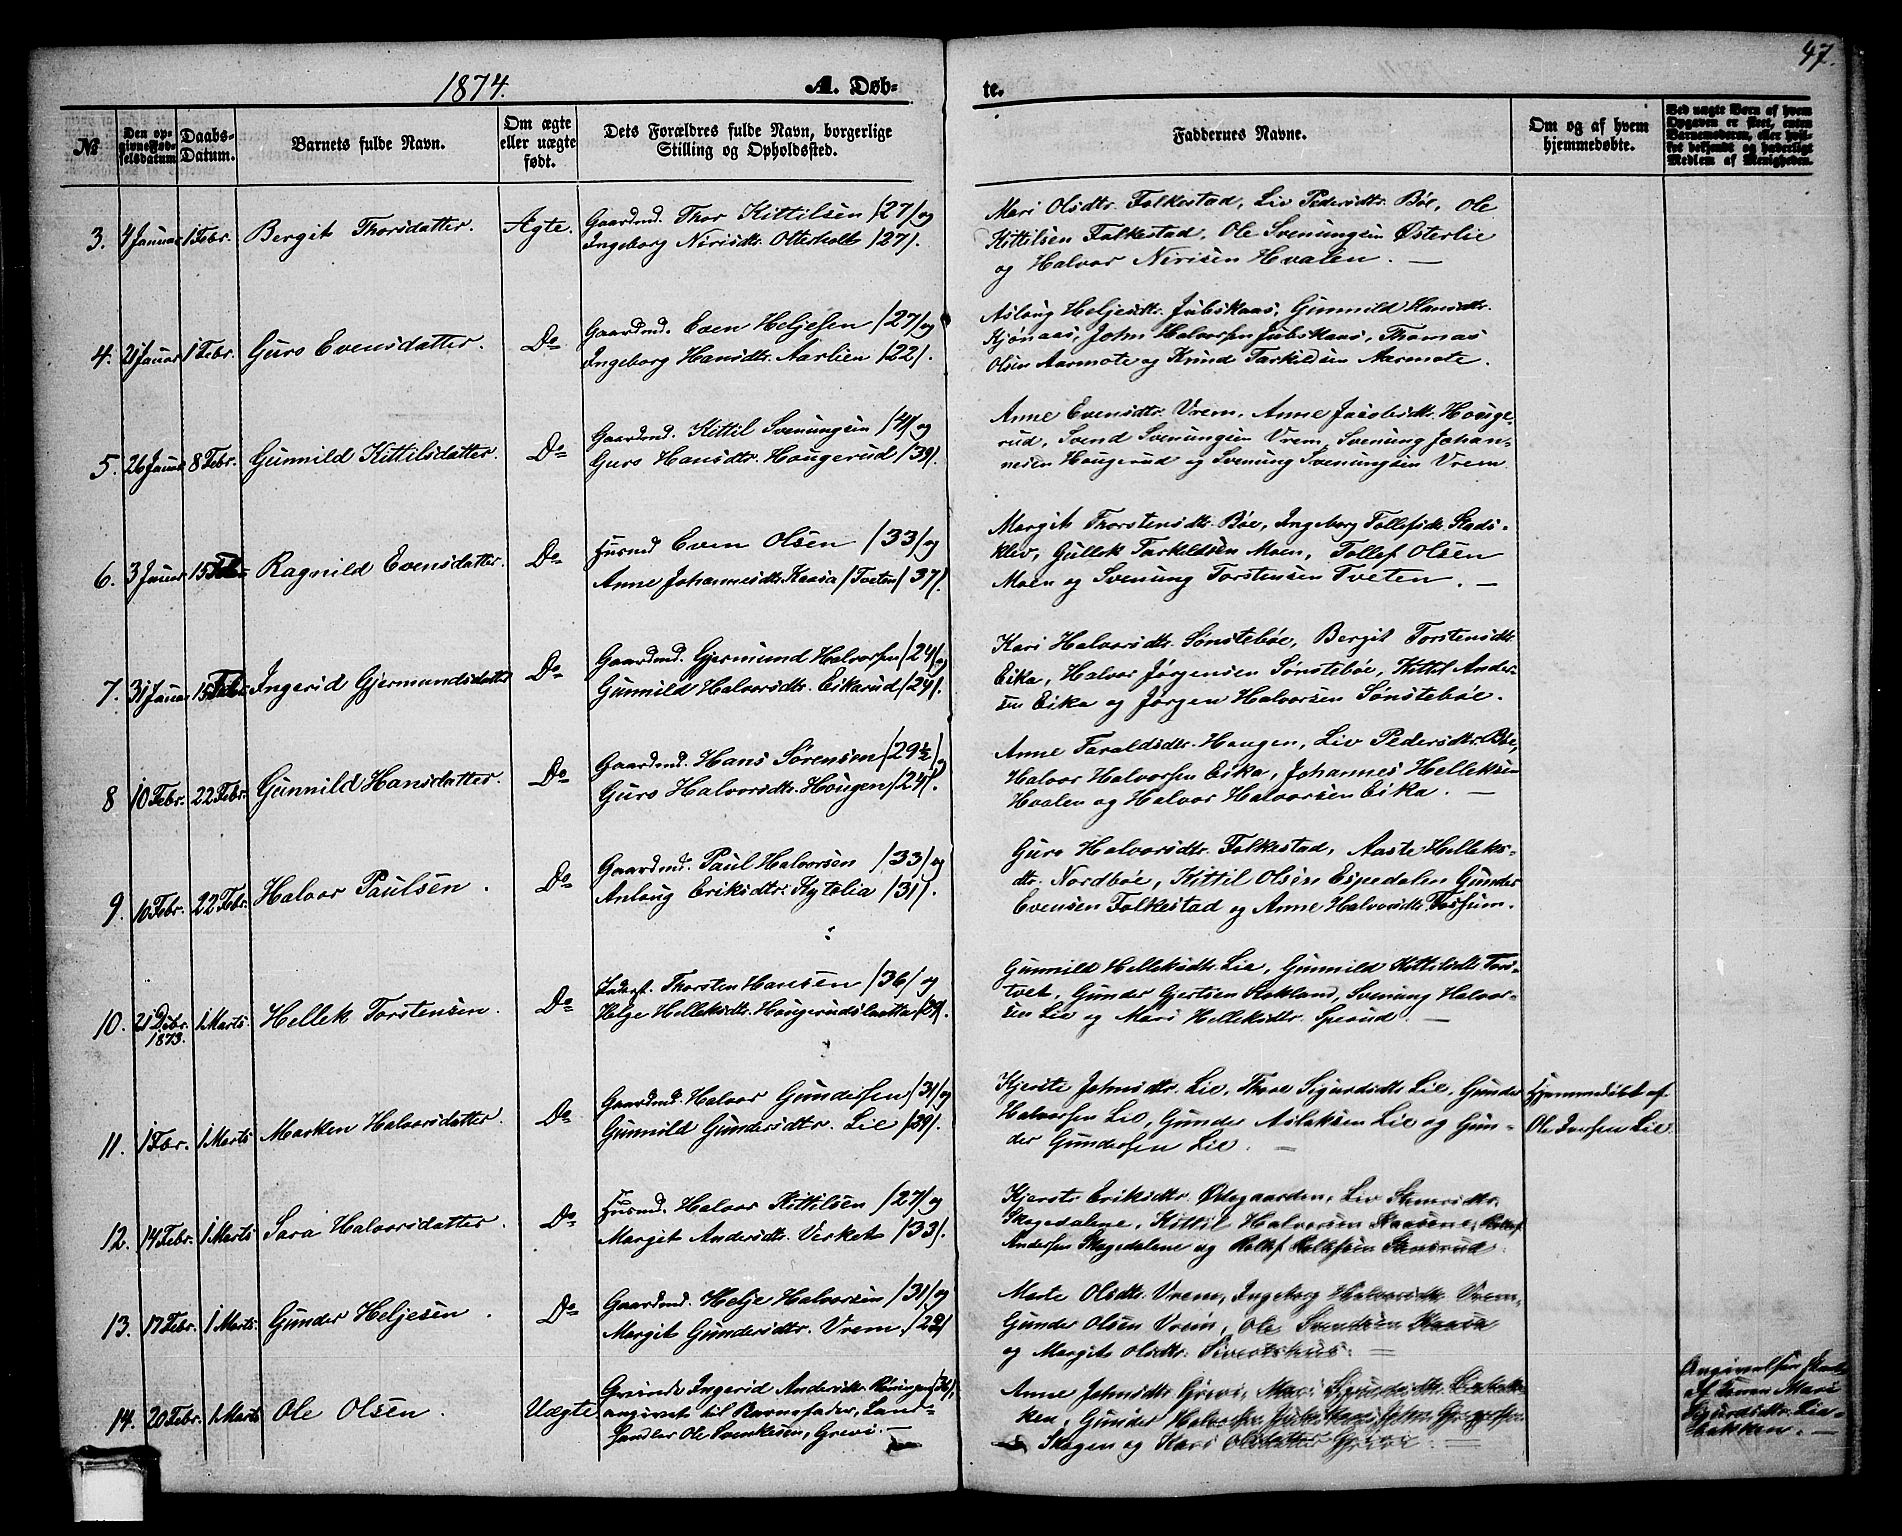 47.
1874.
A. Døb-
te.
№
Den opgivne Fødselsdatum
Daabs-Datum.
Barnets fulde Navn.
Om ægte eller uægte født.
Dets Forældres fulde Navn, borgerlige Stilling og Opholdssted.
Faddernes Navne.
Om og af hvem hjemmedøbte.
Ved uægte Børn af hvem Opgaven er skeet, enten Barnemoderen, eller hvilket bekjendt og hæderligt Medlem af Menigheden.
3. 4 Januar 1 Febr. Bergit Thorsdatter. Ægte.
Gaardmd. Thor Kittilsen /27/ og
Ingeborg Nirisdtr. Otterholt /27/.
Mari Olsdtr. Folkestad, Liv Pedersdtr. Bøe, Ole
Kittilsen Folkestad, Ole Svenungsen Østerlie
og Halvor Nirisen Hvalen. —
4. 21 Januar 1 Febr. Guro Evensdatter. Do
Gaardmd. Even Heljesen /27/ og
Ingeborg Hansdtr. Aarlien /22/.
Aslaug Heljesdtr. Jubskaas, Gunnild Hansdtr.
Gjønaas, John Halvorsen Jubskaas, Thomas
Olsen Aarmote og Knud Tarkildsen Aarmote.
5. 26 Januar 8 Febr. Gunnild Kittilsdatter. Do
Gaardmd. Kittil Svenungsen /41/ og
Guro Hansdtr. Hougerud /39/.
Anne Evensdtr. Vrem, Anne Jacobsdtr. Houge-
rud, Svend Svenungsen Vrem, Svenung Johan-
nesen Hougerud og Svenung Svenungsen Vrem
6. 3 Januar 15 Febr. Ragnild Evensdatter. Do
Husmd Even Olsen /33/ og
Anne Johannesdtr. Kaasa /Tveten/ 37/.
Margit Thorstensdtr. Bøe, Ingeborg Tollefsdtr. Stads-
klev, Gullek Tarkeldsen Moen, Tollef Olsen
Moen og Svenung Torstensen Tveten. —
7. 31 Januar 15 Febr. Ingerid Gjermundsdatter Do
Gaardmd. Gjermund Halvorsen /24/ og
Gunnild Halvorsdtr. Eikarud /24/.
Kari Halvorsdtr. Sønstebøe, Bergit Torstensdtr.
Eika, Halvor Jørgensen Sønstebøe, Kittil Ander-
sen Eika og Jørgen Halvorsen Sønstebøe.
8 10 Febr. 22 Febr. Gunnild Hansdatter. Do
Gaardmd. Hans Sørensen /29½/ og
Guro Halvorsdtr. Hougen /24/.
Anne Taraldsdtr. Hougen, Liv Pedersdtr. Bøe,
Halvor Halvorsen Eika, Johannes Helleksen
Hvalen og Halvor Halvorsen Eika. —
9. 10 Febr. 22 Febr. Halvor Paulsen. Do
Gaardmd. Paul Halvorsen /33/ og
Anlaug Eriksdtr. Kytelia /31/.
Guro Halvorsdtr. Folkestad, Aaste Helleks-
dtr. Nordbøe, Kittil Olsen Espedalen Gunder
Evensen Folkestad og Anne Halvorsdtr. Vossum.
10. 21 Debr. 1873. 1 Marts Hellek Torstensen. Do
Inderst. Thorsten Hansen /36/ og
Helge Helleksdtr. Hougerudslaatta /39/.
Gunnild Helleksdtr. Lie, Gunnild Kittilsdtr. Tors-
tvet, Gunder Gjertsen Rokland, Svenung Halvor-
sen Lie og Mari Helleksdtr. Sperud. —
11. 1 Febr. 1 Marts Marken Halvorsdatter. Do
Gaardmd. Halvor Gundersen /31/ og
Gunnild Gundersdtr. Lie /39/.
Kjerste Johnsdtr. Lie, Thore Sigurdsdtr. Lie, Gunder
Halvorsen Lie, Gunder Aslaksen Lie og Gun-
der Gundersen Lie. —
Hjemmedøbt af
Ole Iversen Lie
12. 14 Febr. 1 Marts Sara Halvorsdatter. Do
Husmd. Halvor Kittilsen /27/ og
Margit Andersdtr. Virket /33/.
Kjersti Eriksdtr. Ødegaarden, Liv Steensdtr.
Skogedalene, Kittil Halvorsen Kaasene, Rollef
Andersen Skogedalene og Rollef Rollefsen Stensrud.
13. 17 Febr. 1 Marts Gunder Heljesen. Do
Gaardmd. Helje Halvorsen /31/ og
Margit Gundersdtr. Vrem. /22/
Marte Olsdtr. Vrem, Ingeborg Halvorsdtr. Vrem.
Gunder Olsen Vrem, Ole Svendsen Kaasa
og Margit Olsdtr. Sivertshus. —
14. 20 Febr. 1 Marts Ole Olsen. Uægte
Ingerid Andersdtr. /36/,
angivet til Barnefader, Land-
handler Ole Svenkesen, Grevi. —
Anne Johnsdtr. Grevi, Mari Sigurdsdtr. Liebak-
ken, Gunder Halvorsen Jubskaas, John Gregersen
Skogen og Kari Olsdatter Grevi. —
Angivelsen skeet
af Mari
Sigurdsdtr. Lie-
bakken. —